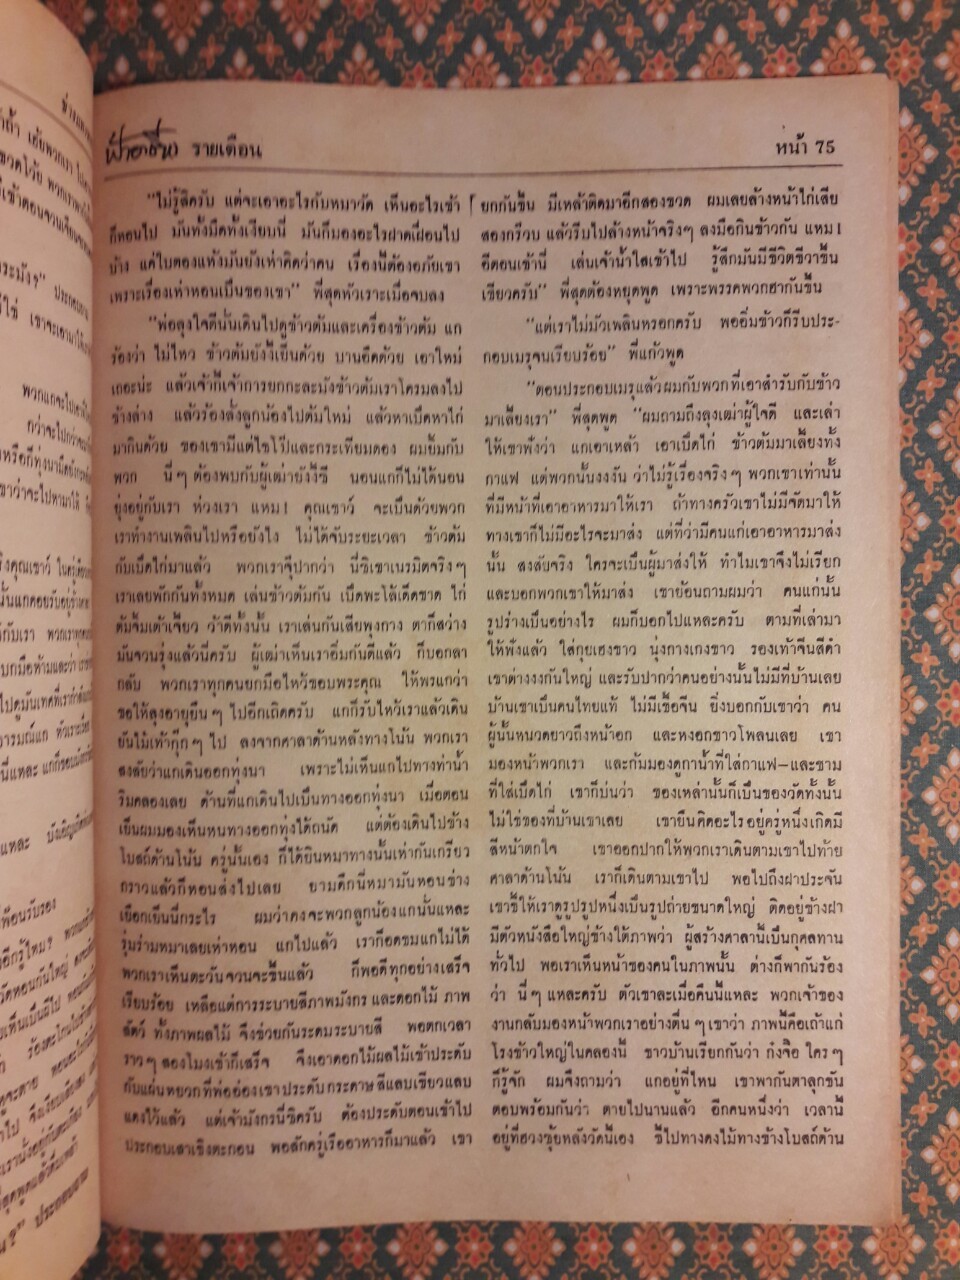 ฟ้าอาชีพ รายเดือน
หน้า 75
"ไม่รู้สิครับ แต่จะเอาอะไรกับหมาวัด เห็นอะไรเข้า
ก็หอนไป มันทั้งมืดทั้งเงียบนี่ มันก็มองอะไรฝาดเฝื่อนไป
บ้าง แค่ใบตองแห้งมันยังเห่าคิดว่าคน เรื่องนี้ต้องอภัยเขา
เพราะเรื่องเห่าหอนเป็นของเขา" พี่สุดหัวเราะเมื่อจบลง
"พ่อลุงใจดีนั่นเดินไปดูข้าวต้มและเครื่องข้าวต้ม แก
ร้องว่า ไม่ไหว ข้าวต้มยังงี้เย็นด้วย บานอืดด้วย เอาใหม่
เถอะน่ะ แล้วเจ้าก็เจ้าการยกกะละมังข้าวต้มเราโครมลงไป
ข้างล่าง แล้วร้องสั่งลูกน้องไปต้มใหม่ แล้วหาเป็ดหาไก่
มากินด้วย ของเขามีแต่ไชโป๊และกระเทียมดอง ผมยิ้มกับ
พวก นี่ๆ ต้องพบกับผู้เฒ่ายังงี้ซี นอนแกก็ไม่ได้นอน
ยุ่งอยู่กับเรา ห่วงเรา แหม! คุณเชาว์ จะเป็นด้วยพวก
เราทำงานเพลินไปหรือยังไง ไม่ได้จับระยะเวลา ข้าวต้ม
กับเป็ดไก่มาแล้ว พวกเราจุ๊ปากว่า นี่ซิเขาเนรมิตจริงๆ
เราเลยพักกันทั้งหมด เล่นข้าวต้มกัน เป็ดพะโล้เด็ดขาด ไก่
ต้มจิ้มเต้าเจี้ยว ว่าดีทั้งนั้น เราเล่นกันเสียพุงกาง ตาก็สว่าง
มันจวนรุ่งแล้วนี่ครับ ผู้เฒ่าเห็นเราอิ่มกันดีแล้ว ก็บอกลา
กลับ พวกเราทุกคนยกมือไหว้ขอบพระคุณ ให้พรแกว่า
ขอให้ลุงอายุยืนๆ ไปอีกเถิดครับ แกก็รับไหว้เราแล้วเดิน
ยันไม้เท้ากุ๊กๆ ไป ลงจากศาลาด้านหลังทางโน้น พวกเรา
สงสัยว่าแกเดินออกทุ่งนา เพราะไม่เห็นแกไปทางท่าน้ำ
ริมคลองเลย ด้านที่แกเดินไปเป็นทางออกทุ่งนา เมื่อตอน
เย็นผมมองเห็นหนทางออกทุ่งได้ถนัด แต่ต้องเดินไปข้าง
โบสถ์ด้านโน้น ครู่นั้นเอง ก็ได้ยินหมาทางนั้นเห่ากันเกรียว
กราวแล้วก็หอนส่งไปเลย ยามดึกนี่หมามันหอนช่าง
เยือกเย็นนี่กระไร ผมว่าคงจะพวกลูกน้องแกนั่นแหละ
รุ่มร่ามหมาเลยเห่าหอน แกไปแล้ว เราก็อดชมแกไม่ได้
พวกเราเห็นตะวันจวนจะขึ้นแล้ว ก็พอดีทุกอย่างเสร็จ
เรียบร้อย เหลือแต่การระบายสีภาพมังกร และดอกไม้ ภาพ
สัตว์ ทั้งภาพผลไม้ จึงช่วยกันระดมระบายสี พอตกเวลา
ราวๆ สองโมงเช้าก็เสร็จ จึงเอาดอกไม้ผลไม้เข้าประดับ
กับแผ่นหยวกที่พ่ออ่องเขาประดับกระดาษสีแสบเขียวแสบ
แดงไว้แล้ว แต่เจ้ามังกรนี่ซิครับ ต้องประดับตอนเข้าไป
ประกอบเสาเชิงตะกอน พอสักครู่เรืออาหารก็มาแล้ว เขา
ยกกันขึ้น มีเหล้าติดมาอีกสองขวด ผมเลยล้างหน้าไก่เสีย
สองกร๊วบ แล้วรีบไปล้างหน้าจริงๆ ลงมือกินข้าวกัน แหม!
อีตอนเช้านี่ เล่นเจ้าน้ำใสเข้าไป รู้สึกมันมีชีวิตชีวาขึ้น
เชียวครับ" พี่สุดต้องหยุดพูด เพราะพรรคพวกฮากันขึ้น
"แต่เราไม่มัวเพลินหรอกครับ พออิ่มข้าวก็รีบประ-
กอบเมรุจนเรียบร้อย" พี่แก้วพูด
"ตอนประกอบเมรุแล้วผมกับพวกที่เอาสำรับกับข้าว
มาเลี้ยงเรา" พี่สุดพูด "ผมถามถึงลุงเฒ่าผู้ใจดี และเล่า
ให้เขาฟังว่า แกเอาเหล้า เอาเป็ดไก่ ข้าวต้มมาเลี้ยงทั้ง
กาแฟ แต่พวกนั้นงงงัน ว่าไม่รู้เรื่องจริงๆ พวกเขาเท่านั้น
ที่มีหน้าที่เอาอาหารมาให้เรา ถ้าทางครัวเขาไม่มีจัดมาให้
ทางเขาก็ไม่มีอะไรจะมาส่ง แต่ที่ว่ามีคนแก่เอาอาหารมาส่ง
นั้น สงสัยจริง ใครจะเป็นผู้มาส่งให้ ทำไมเขาจึงไม่เรียก
และบอกพวกเขาให้มาส่ง เขาย้อนถามผมว่า คนแก่นั้น
รูปร่างเป็นอย่างไร ผมก็บอกไปแหละครับ ตามที่เล่ามา
ให้ฟังแล้ว ใส่กุยเฮงขาว นุ่งกางเกงขาว รองเท้าจีนสีดำ
เขาต่างงงกันใหญ่ และรับปากว่าคนอย่างนั้นไม่มีที่บ้านเลย
บ้านเขาเป็นคนไทยแท้ ไม่มีเชื้อจีน ยิ่งบอกกับเขาว่า คน
ผู้นั้นหนวดยาวถึงหน้าอก และหงอกขาวโพลนเลย เขา
มองหน้าพวกเรา และก้มมองดูกาน้ำที่ใส่กาแฟ–และชาม
ที่ใส่เป็ดไก่ เขาก็บ่นว่า ของเหล่านั้นก็เป็นของวัดทั้งนั้น
ไม่ใช่ของที่บ้านเขาเลย เขายืนคิดอะไรอยู่ครู่หนึ่งเกิดมี
สีหน้าตกใจ เขาออกปากให้พวกเราเดินตามเขาไปท้าย
ศาลาด้านโน้น เราก็เดินตามเขาไป พอไปถึงฝาประจัน
เขาชี้ให้เราดูรูปรูปหนึ่งเป็นรูปถ่ายขนาดใหญ่ ติดอยู่ข้างฝา
มีตัวหนังสือใหญ่ข้างใต้ภาพว่า ผู้สร้างศาลานี้เป็นกุศลทาน
ทั่วไป พอเราเห็นหน้าของคนในภาพนั้น ต่างก็พากันร้อง
ว่า นี่ๆ แหละครับ ตัวเขาละเมื่อคืนนี้แหละ พวกเจ้าของ
งานกลับมองหน้าพวกเราอย่างตื่นๆ เขาว่า ภาพนี้คือเถ้าแก่
โรงข้าวใหญ่ในคลองนี้ ชาวบ้านเรียกกันว่า ก๋งจือ ใครๆ
ก็รู้จัก ผมจึงถามว่า แกอยู่ที่ไหน เขาพากันตาลุกชัน
ตอบพร้อมกันว่า ตายไปนานแล้ว อีกคนหนึ่งว่า เวลานี้
อยู่ที่ฮวงซุ้ยหลังวัดนี้เอง ชี้ไปทางดงไม้ทางข้างโบสถ์ด้าน